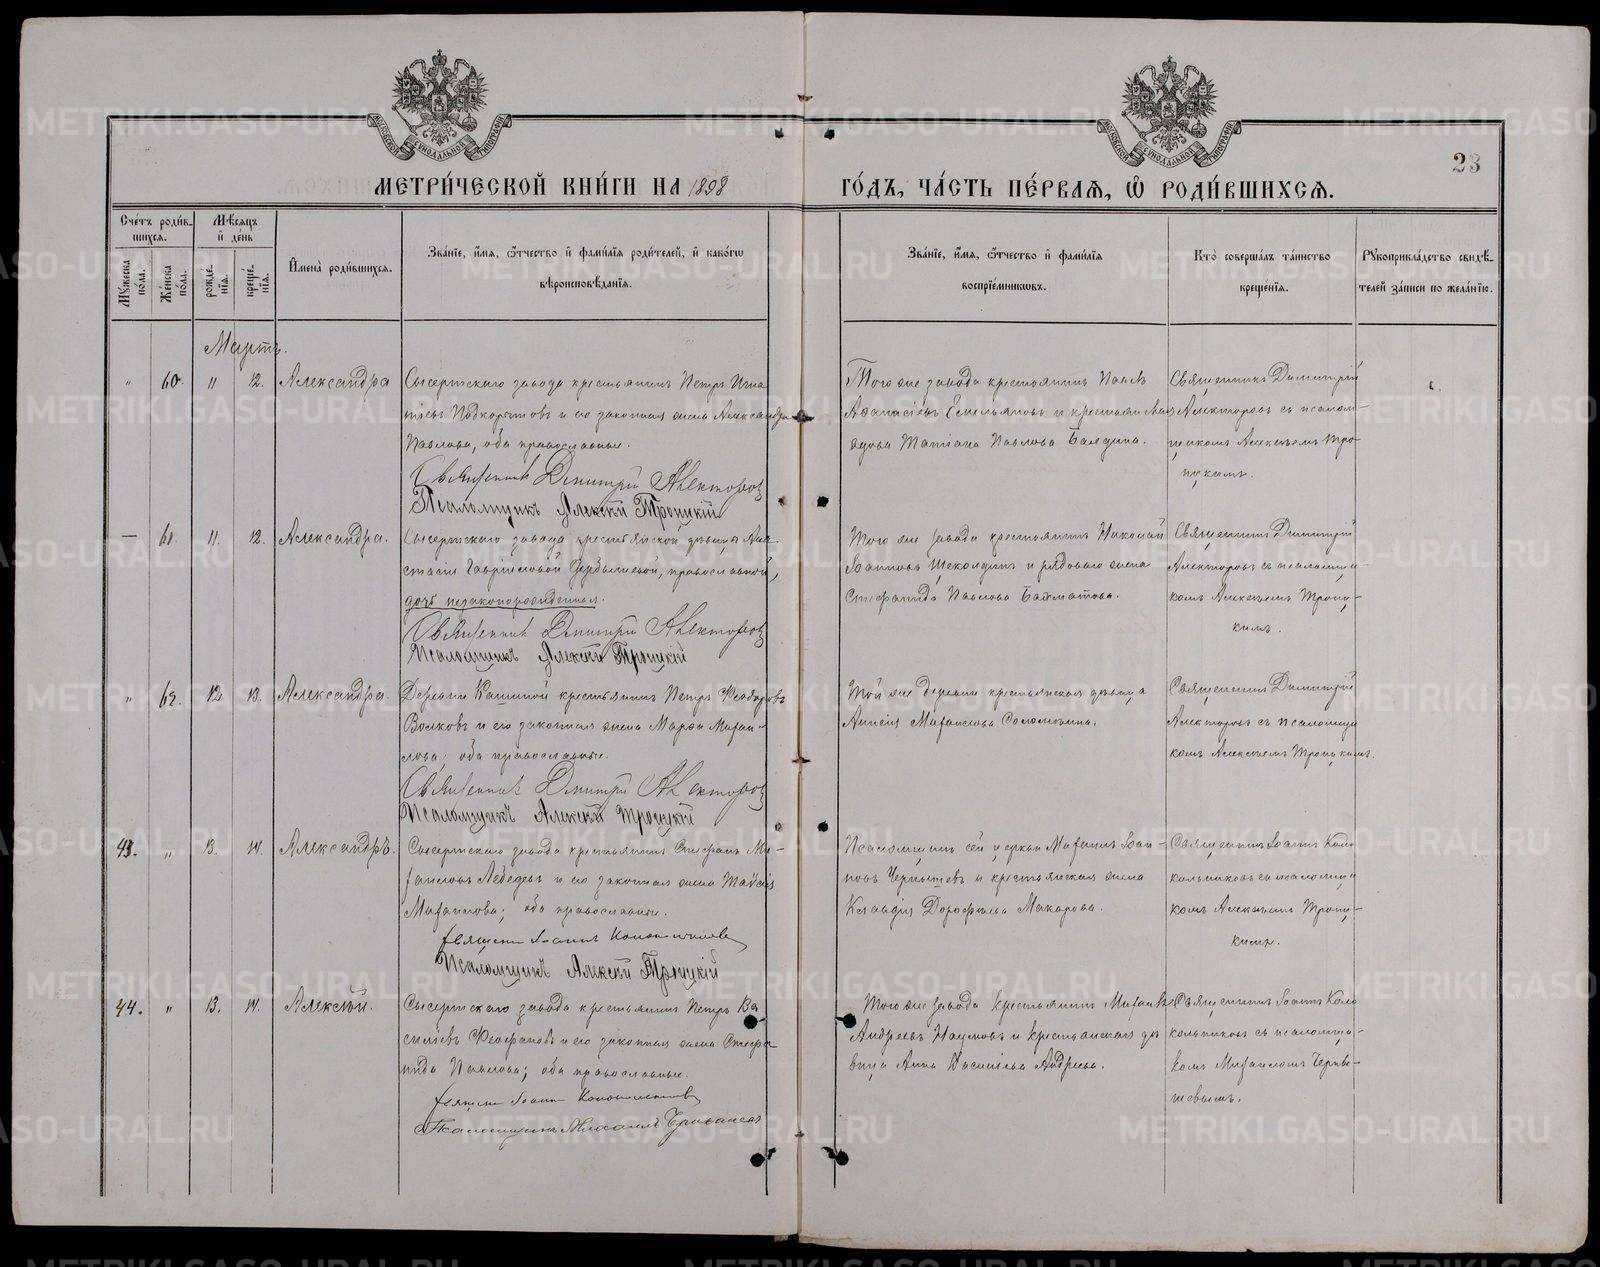 МЕТРИ́ЧЕСКОЙ КНИ́ГИ НА 1898
ГО́ДЪ, ЧА́СТЬ ПЕ́РВАѦ, Ѿ РОДИ́ВШИХСѦ.
23
Сче́тъ роди́в-
шихсѧ.
Мѣ́сѧцъ
и҆ де́нь
Мꙋ́жеска
по́ла.
Же́нска
по́ла.
рожде́-
нїѧ.
креще́-
нїѧ.
И҆мена̀ роди́вшихсѧ.
Зва́нїе, и҆́мѧ, ѻ҆́тчество и҆ фами́лїѧ роди́телей, и҆ како́гѡ
вѣроисповѣ́данїѧ.
Зва́нїе, и҆́мѧ, ѻ҆́тчество и҆ фами́лїѧ
воспрїе́мникѡвъ.
Кто̀ соверша́лъ та́инство
креще́нїѧ.
Рꙋкоприкла́дство свидѣ́-
телей за́писи по жела́нїю.
Мартъ.
" 60. 11 12. Александра
Сысертскаго завода крестьянинъ Петръ Игна
тіевъ Подкорытовъ и его законная жена Александра
Павлова, оба православные.
Священникъ Димитрій Алекторовъ
Псаломщикъ Алексѣй Троицкій
Того же завода крестьянинъ Павелъ
Аѳанасіевъ Емельяновъ и крестьянская
вдова Татіана Павлова
Священникъ Димитрій
Алекторовъ съ псалом-
щикомъ Алексѣемъ Тро-
ицкимъ.
— 61. 11. 12. Александра.
Сысертскаго завода крестьянской дѣвицы Ана-
стасіи Гавріиловой православной,
дочь незаконорожденная.
Священникъ Димитрій Алекторовъ
Псаломщикъ Алексѣй Троицкій
Того же завода крестьянинъ Николай
Іоанновъ Щеколдинъ и рядового жена
Стефанида Павлова Бахматова.
Священникъ Димитрій
Алекторовъ съ псаломщи-
комъ Алексѣемъ Троиц-
кимъ.
" 62. 12 13. Александра.
Деревни Кашиной крестьянинъ Петръ Ѳеодоровъ
Волковъ и его законная жена Марѳа Михаи-
лова; оба православные.
Священникъ Димитрій Алекторовъ
Псаломщикъ Алексѣй Троицкій
Той же деревни крестьянская дѣвица
Анисія Михаилова Соломеина.
Священникъ Димитрій
Алекторовъ съ псаломщи
комъ Алексѣемъ Троицкимъ.
43. " 13. 14. Александръ.
Сысертскаго завода крестьянинъ Стефанъ Ми-
хаиловъ Лебедевъ и его законная жена Таисія
Михаилова; оба православные.
Священ. Іоаннъ Кокольниковъ
Псаломщикъ Алексѣй Троицкій
Псаломщикъ сей церкви Михаилъ Іоан-
новъ Чернышевъ и крестьянская жена
Клавдія Дороѳеева Макарова.
Священникъ Іоаннъ Коко
кольниковъ съ псаломщи
комъ Алексѣемъ Троиц-
кимъ.
44. " 13. 14. Алексѣй.
Сысертскаго завода крестьянинъ Петръ Ва
силіевъ Ѳеофановъ и его законная жена Стефа
нида Павлова; оба православные.
Священ. Іоаннъ Кокольниковъ
Псаломщикъ Михаилъ Чернышевъ
Того же завода крестьянинъ Михаилъ
Андреевъ Наумовъ и крестьянская дѣ
вица Анна Василіева Андреева.
Священникъ Іоаннъ Коко
кольниковъ съ псаломщи-
комъ Михаиломъ Черны-
шевымъ.
METRIKI.GASO-URAL.RU